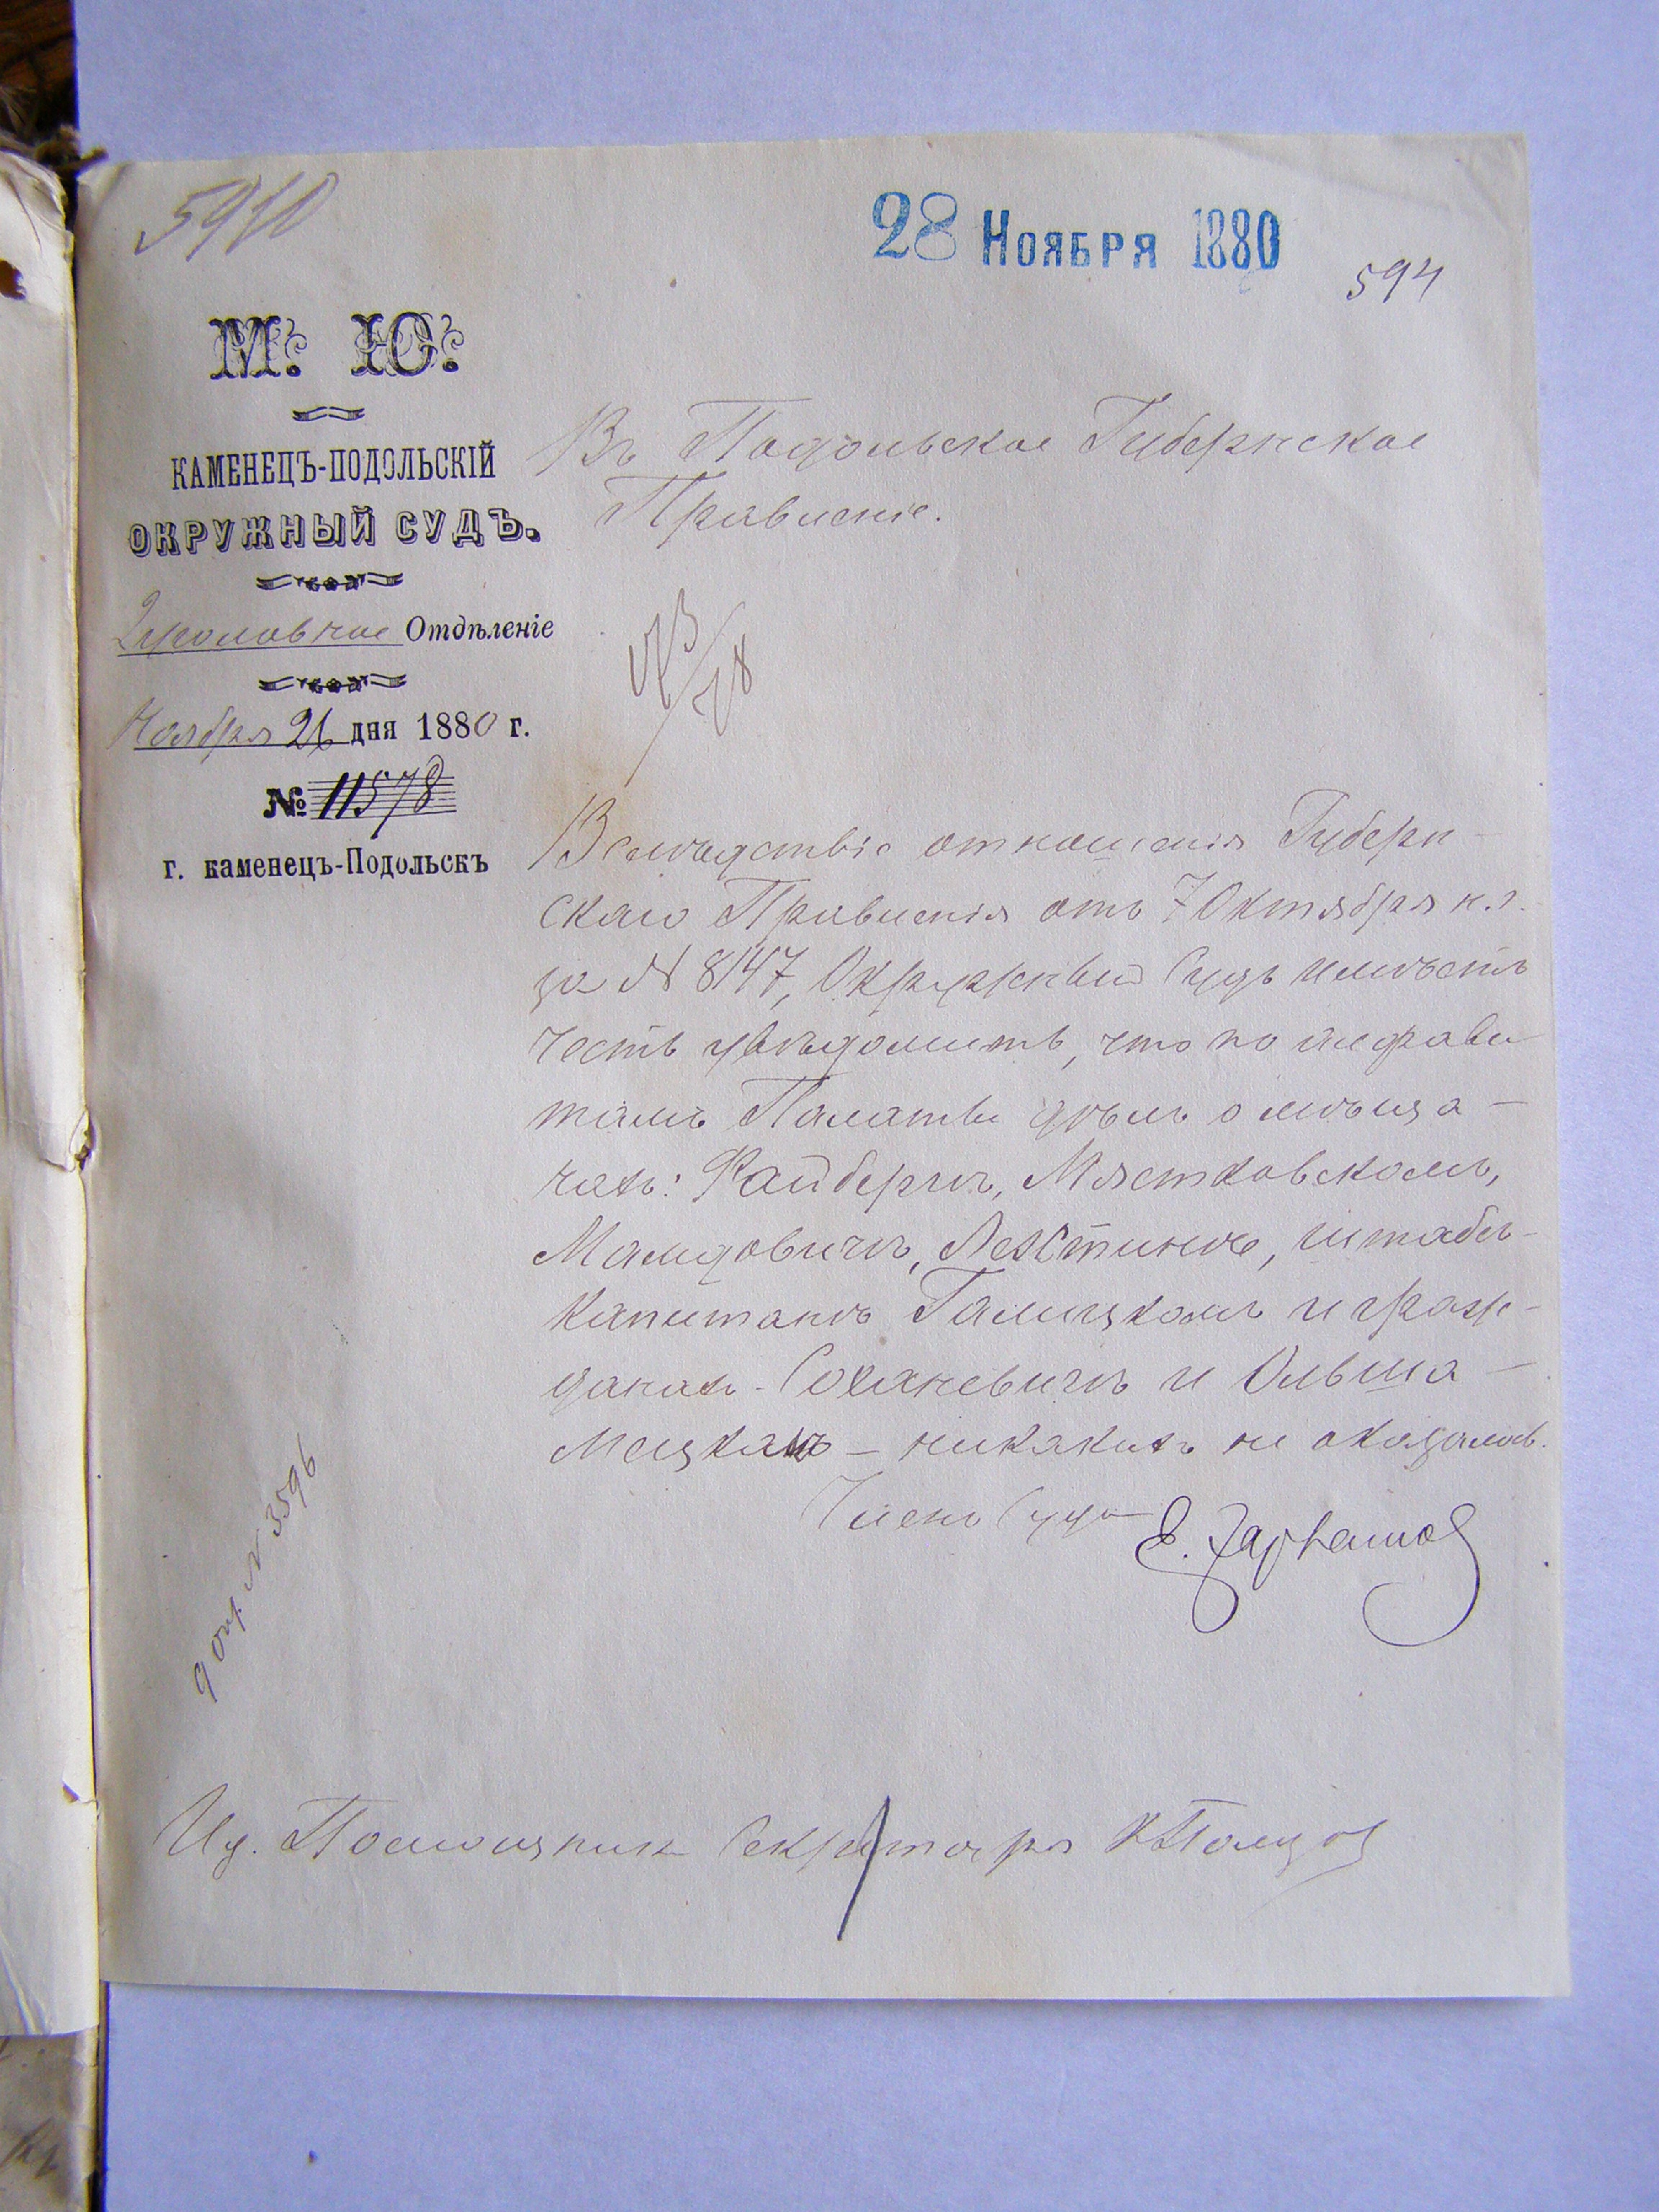 5910
28 Ноября 1880
594
М. Ю.
КАМЕНЕЦЪ-ПОДОЛЬСКІЙ
ОКРУЖНЫЙ СУДЪ.
2 уголовное Отдѣленіе
Ноября 26 дня 1880 г.
№ 11578
г. каменецъ-Подольскъ
Въ Подольское Губернское
Правленіе.
Вслѣдствіе отношенія Губерн-
скаго Правленія отъ 7 Октября н.г.
за N 8147, Окружный Судъ имѣетъ
честь увѣдомить, что по алфави
тамъ Палаты дѣлъ о мѣща-
нахъ: Файбергѣ, Мястковскомъ,
Мамдовичѣ, Лехтинѣ, штабсъ-
Капитанѣ Галицкомъ и граж-
данахъ - Соханевичѣ и Ольша-
нецкомъ - никакихъ не оказалось.
Членъ Суда Е.
N 3596
Ид. Помощника Секретаря